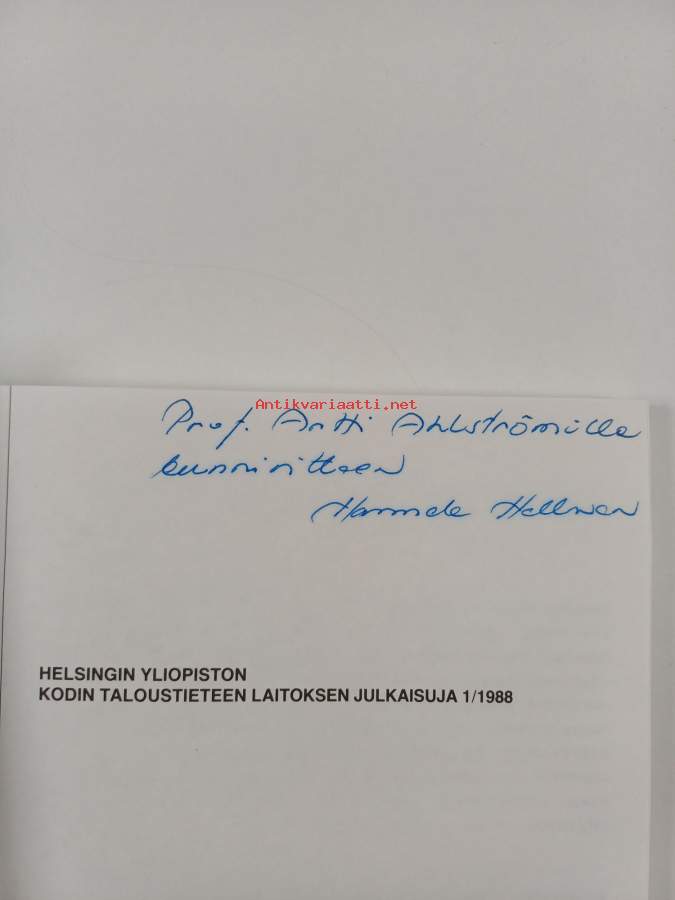 Antikvariaatti.net
Prof. Antti Ahlströmille
kunnioittaen
Hannele Hellman
HELSINGIN YLIOPISTON
KODIN TALOUSTIETEEN LAITOKSEN JULKAISUJA 1/1988